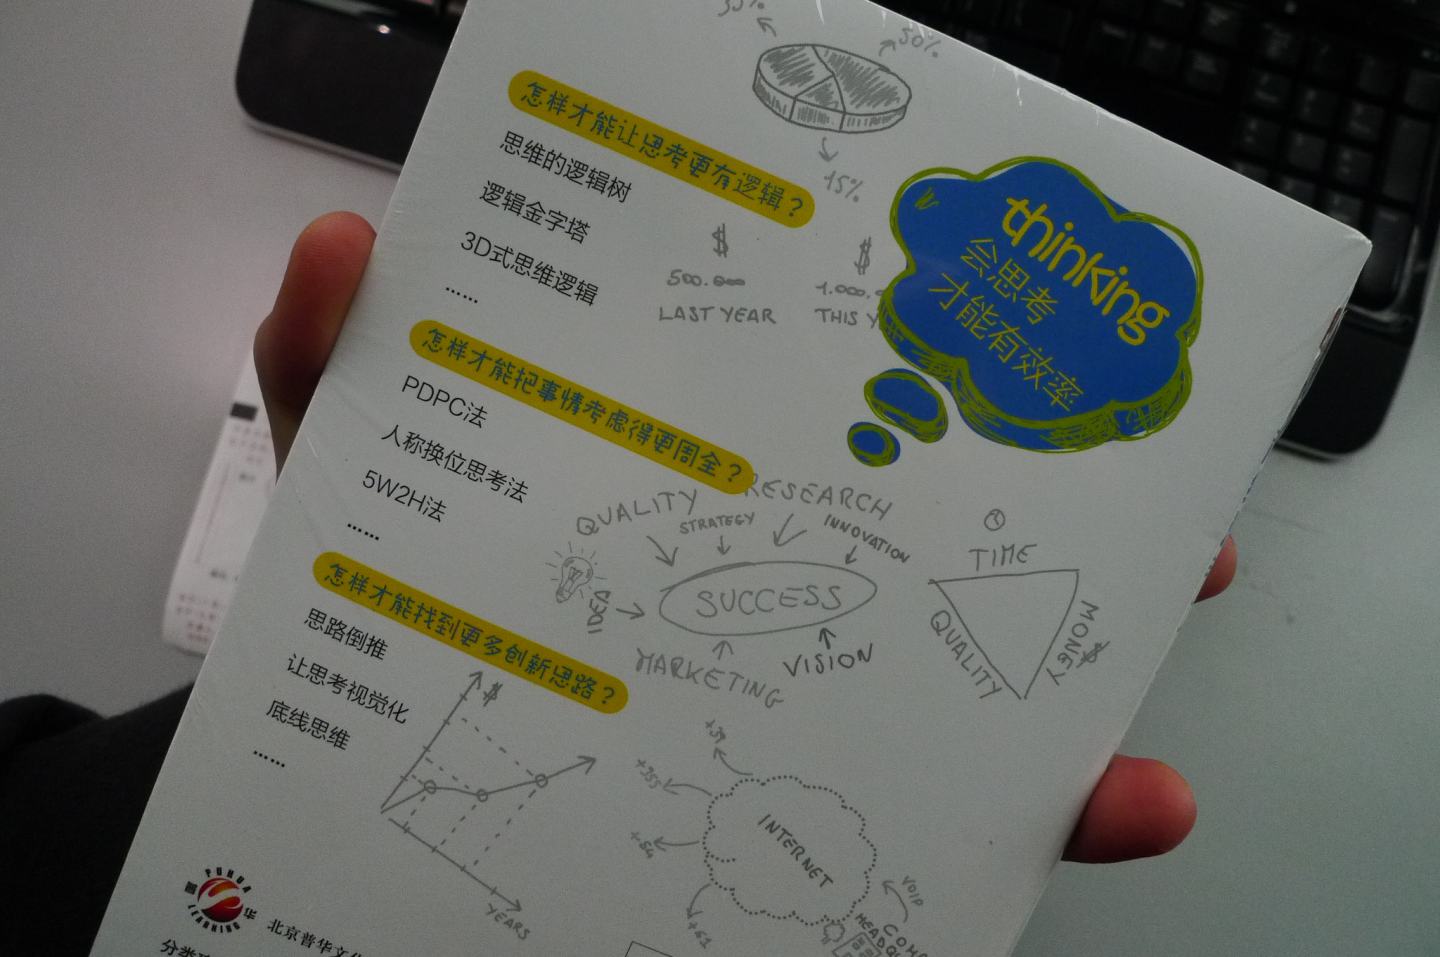 50%
15%
怎样才能让思考更有逻辑？
思维的逻辑树
逻辑金字塔
3D式思维逻辑
……
$
$
500.000
LAST YEAR
THIS
thinking
会思考
才能有效率
怎样才能把事情考虑得更周全？
PDPC法
人称换位思考法
5W2H法
……
QUALITY
RESEARCH
STRATEGY
INNOVATION
IDEA
SUCCESS
MARKETING
VISION
TIME
QUALITY
MONEY
$
怎样才能找到更多创新思路？
思路倒推
让思考视觉化
底线思维
……
$
YEARS
+39
+355
+54
+61
INTERNET
VOIP
PUHUA
LEARNING
普
华
北京普华文
分类